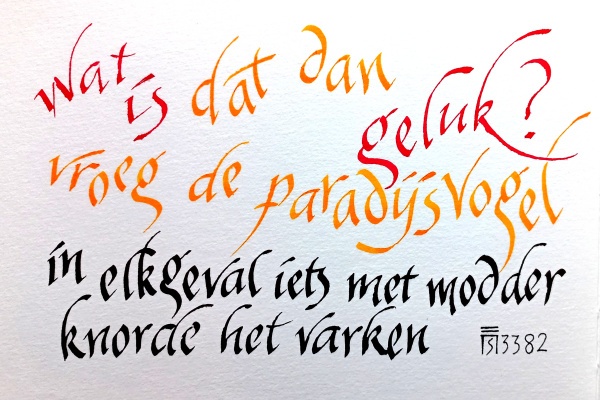 Wat is dat dan
geluk?
vroeg de paradijsvogel
in elkgeval iets met modder
knorde het varken
3382